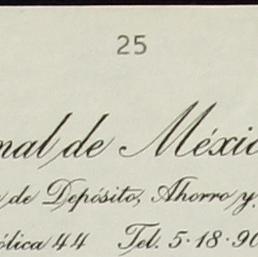 25
nal de Méxic
de Depósito, Ahorro y
ólica 44 Tel. 5-18-90